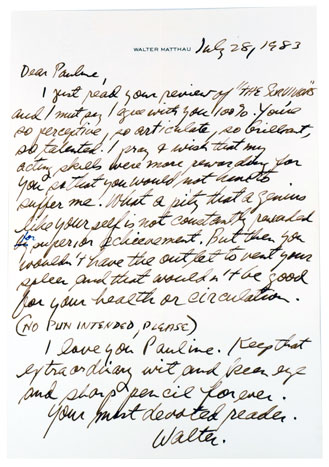 WALTER MATTHAU
July 28, 1983
Dear Pauline,
I just read your review of "THE SURVIVORS"
and I must say I agree with you 100%. You're
so perceptive, so articulate, so brilliant,
so talented. I pray & wish that my
acting skills were more rewarding for
you so that you would not have to
suffer me. What a pity that a genius
like yourself is not constantly rewarded
for superior achievement. But then you
wouldn't have the outlet to vent your
spleen and that wouldn't be good
for your health or circulation.
(NO PUN INTENDED, PLEASE)
I love you Pauline. Keep that
extraordinary wit and keen eye
and sharp pencil forever.
Your most devoted reader.
Walter.